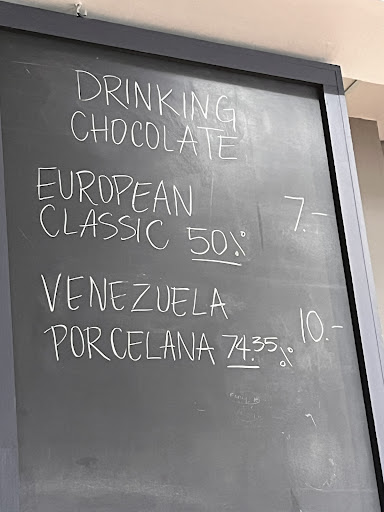 DRINKING
CHOCOLATE
EUROPEAN
CLASSIC 50% 7.-
VENEZUELA
PORCELANA 74.35% 10.-